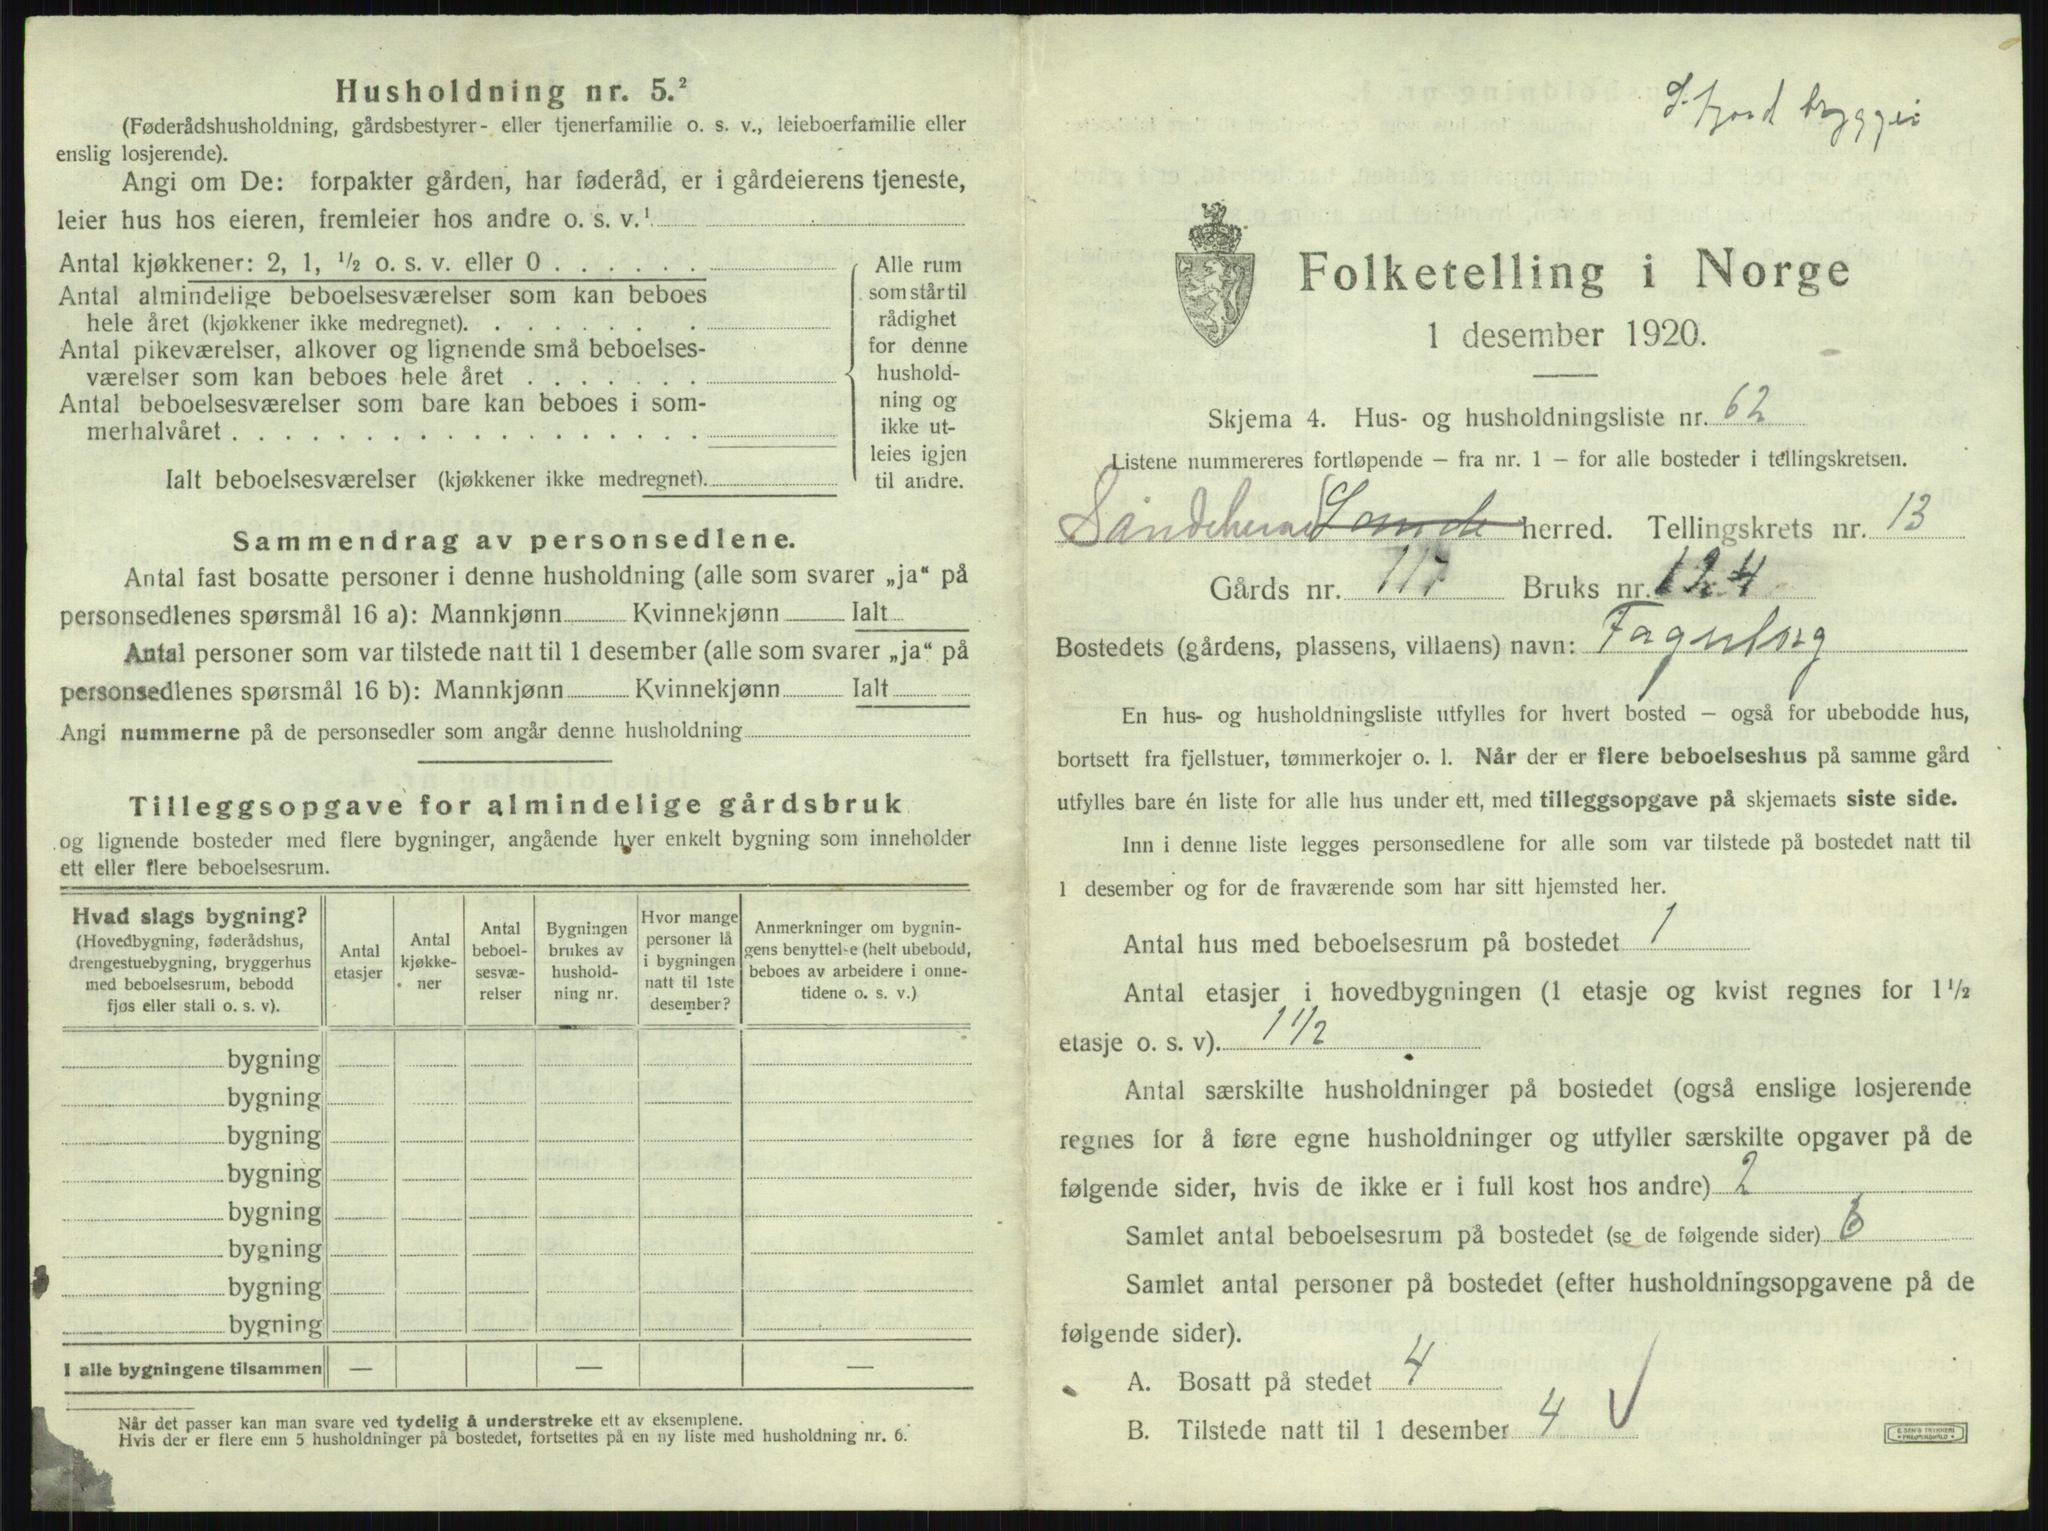 Husholdning nr. 5.²
(Føderådshusholdning, gårdsbestyrer- eller tjenerfamilie o. s. v., leieboerfamilie eller
enslig losjerende).
Angi om De: forpakter gården, har føderåd, er i gårdeierens tjeneste,
leier hus hos eieren, fremleier hos andre o. s. v.¹
Antal kjøkkener: 2, 1, ½ o. s. v. eller 0 . . . . . .
Antal almindelige beboelsesværelser som kan beboes
hele året (kjøkkener ikke medregnet). . . . . . . . .
Antal pikeværelser, alkover og lignende små beboelses-
værelser som kan beboes hele året . . . . . . .
Antal beboelsesværelser som bare kan beboes i som-
merhalvåret . . . . . . . . . . . . . . . . . .
Ialt beboelsesværelser (kjøkkener ikke medregnet).
Alle rum
som står til
rådighet
for denne
hushold-
ning og
ikke ut-
leies igjen
til andre.
Sammendrag av personsedlene.
Antal fast bosatte personer i denne husholdning (alle som svarer „ja“ på
personsedlenes spørsmål 16 a): Mannkjønn Kvinnekjønn Ialt
Antal personer som var tilstede natt til 1 desember (alle som svarer „ja“ på
personsedlenes spørsmål 16 b): Mannkjønn Kvinnekjønn Ialt
Angi nummerne på de personsedler som angår denne husholdning
Tilleggsopgave for almindelige gårdsbruk
og lignende bosteder med flere bygninger, angående hver enkelt bygning som inneholder
ett eller flere beboelsesrum.
Hvad slags bygning?
(Hovedbygning, føderådshus,
drengestuebygning, bryggerhus
med beboelsesrum, bebodd
fjøs eller stall o. s. v).
Antal
etasjer
Antal
kjøkke-
ner
Antal
beboel-
sesvæ-
relser
Bygningen
brukes av
hushold-
ning nr.
Hvor mange
personer lå
i bygningen
natt til 1ste
desember?
Anmerkninger om bygnin-
gens benyttelse (helt ubebodd,
beboes av arbeidere i onne-
tidene o. s. v.)
bygning
bygning
bygning
bygning
bygning
bygning
bygning
bygning
I alle bygningene tilsammen — — —
Når det passer kan man svare ved tydelig å understreke ett av eksemplene.
Hvis der er flere enn 5 husholdninger på bostedet, fortsettes på en ny liste med husholdning nr. 6.
Folketelling i Norge
1 desember 1920.
Skjema 4. Hus- og husholdningsliste nr. 62
Listene nummereres fortløpende – fra nr. 1 – for alle bosteder i tellingskretsen.
Sandeherred Sande herred. Tellingskrets nr. 13
Gårds nr. 117 Bruks nr. 124
Bostedets (gårdens, plassens, villaens) navn: Fagerborg
En hus- og husholdningsliste utfylles for hvert bosted – også for ubebodde hus,
bortsett fra fjellstuer, tømmerkojer o. l. Når der er flere beboelseshus på samme gård
utfylles bare én liste for alle hus under ett, med tilleggsopgave på skjemaets siste side.
Inn i denne liste legges personsedlene for alle som var tilstede på bostedet natt til
1 desember og for de fraværende som har sitt hjemsted her.
Antal hus med beboelsesrum på bostedet 1
Antal etasjer i hovedbygningen (1 etasje og kvist regnes for 1½
etasje o. s. v). 1 1/2
Antal særskilte husholdninger på bostedet (også enslige losjerende
regnes for å føre egne husholdninger og utfyller særskilte opgaver på de
følgende sider, hvis de ikke er i full kost hos andre) 2
Samlet antal beboelsesrum på bostedet (se de følgende sider)
Samlet antal personer på bostedet (efter husholdningsopgavene på de
følgende sider).
A. Bosatt på stedet 4
B. Tilstede natt til 1 desember 4